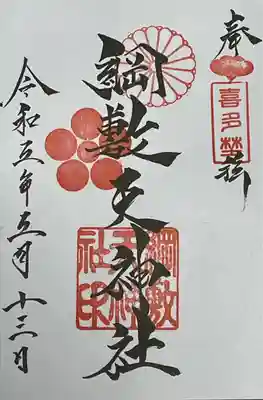 奉拝
喜多埜
綱敷天神社
綱敷天神社印
令和五年五月十三日